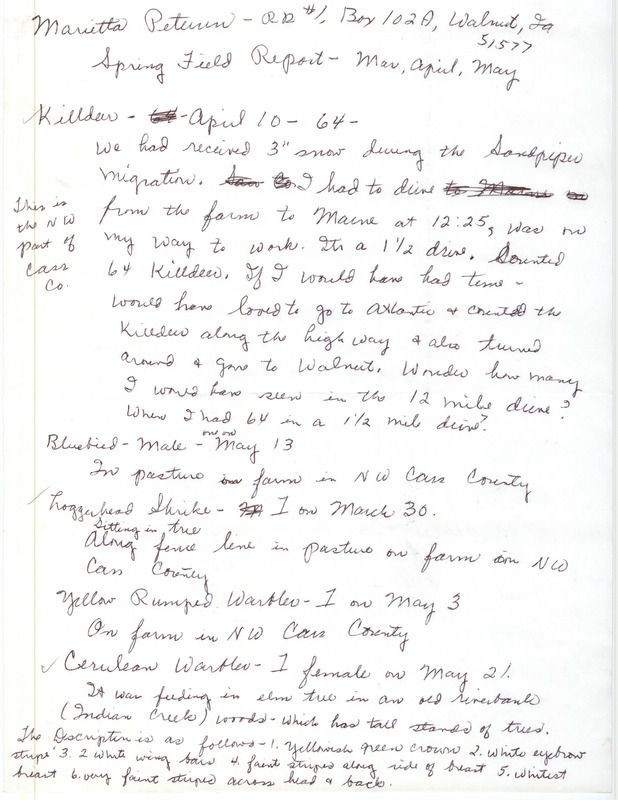 Marietta Petersen - RR #1, Box 102A, Walnut, Ia
51577
Spring Field Report - Mar, April, May
Killdeer - April 10 - 64 -
We had received 3" snow during the Sandpiper
migration. I had to drive
from the farm to Marne at 12:25, was on
my way to work. Its a 1 1/2 drive. Counted
64 Killdeer. If I would have had time -
would have loved to go to Atlantic & counted the
Killdeer along the highway & also turned
around & gone to Walnut. Wonder how many
I would have seen in the 12 mile drive?
When I had 64 in a 1 1/2 mile drive?
This is
the NW
part of
Cass
Co.
Bluebird - Male - May 13
In pasture on farm in NW Cass County
✓ Loggerhead Shrike - 1 on March 30.
Sitting in tree
Along fence line in pasture on farm in NW
Cass County
Yellow Rumped Warbler - 1 on May 3
On farm in NW Cass County
✓ Cerulean Warbler - 1 female on May 21.
It was feeding in elm tree in an old riverbank
(Indian Creek) woods - which has tall stands of trees.
The Discription is as follows - 1. Yellowish green crown 2. White eyebrow
stripe 3. 2 white wing bars 4. faint stripes along side of breast 5. Whitest
breast 6. very faint stripes across head & back.